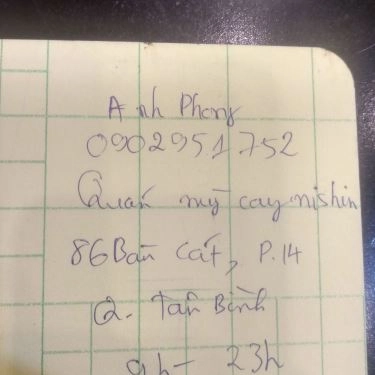 Anh Phong
0902951752
Quán mỳ cay nishin
86 Bàu Cát, P.14
Q. Tân Bình
9h - 23h